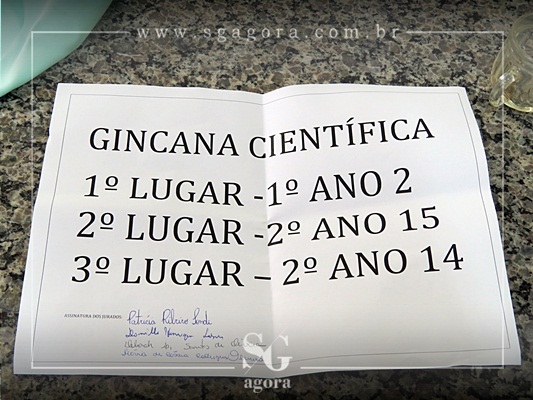 www.sgagora.com.br
GINCANA CIENTÍFICA
1º LUGAR -1º ANO 2
2º LUGAR -2º ANO 15
3º LUGAR – 2º ANO 14
ASSINATURA DOS JURADOS:
Patricia Ribeiro
Henrique
Santos de
Maria de
SG
agora